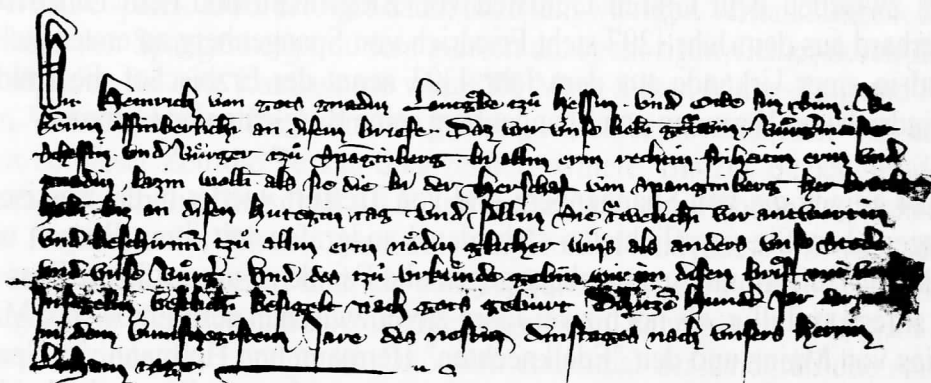 Wir Heinrich von gots gnadin Lantgbe tzu hessin. Und Otte sin son. Be
kennin offinberlichi an disem briefe. Daz wir unse liebi getruwin. Burgmeister
scheffin und Burger tzu Spanginberg. bi allin erin rechtin friheitin erin und
gnadin lazin wolli als sie die bi der herschaf von Spanginberg her bracht
habi biz an disen hutegin tag und sullin sie truwelichi vor antwortin
und beschirmi tzu allin erin nodin glicher wis als anders unse stede
und unse Burger. Und des tzu urkunde gebin wir en disen brift mit
Ingesigeln besigelt nach gots geburt Dritzen hundt Jar dar
in dem funftzigistem Jare des nestin dinstages nach unsers herrin
tage